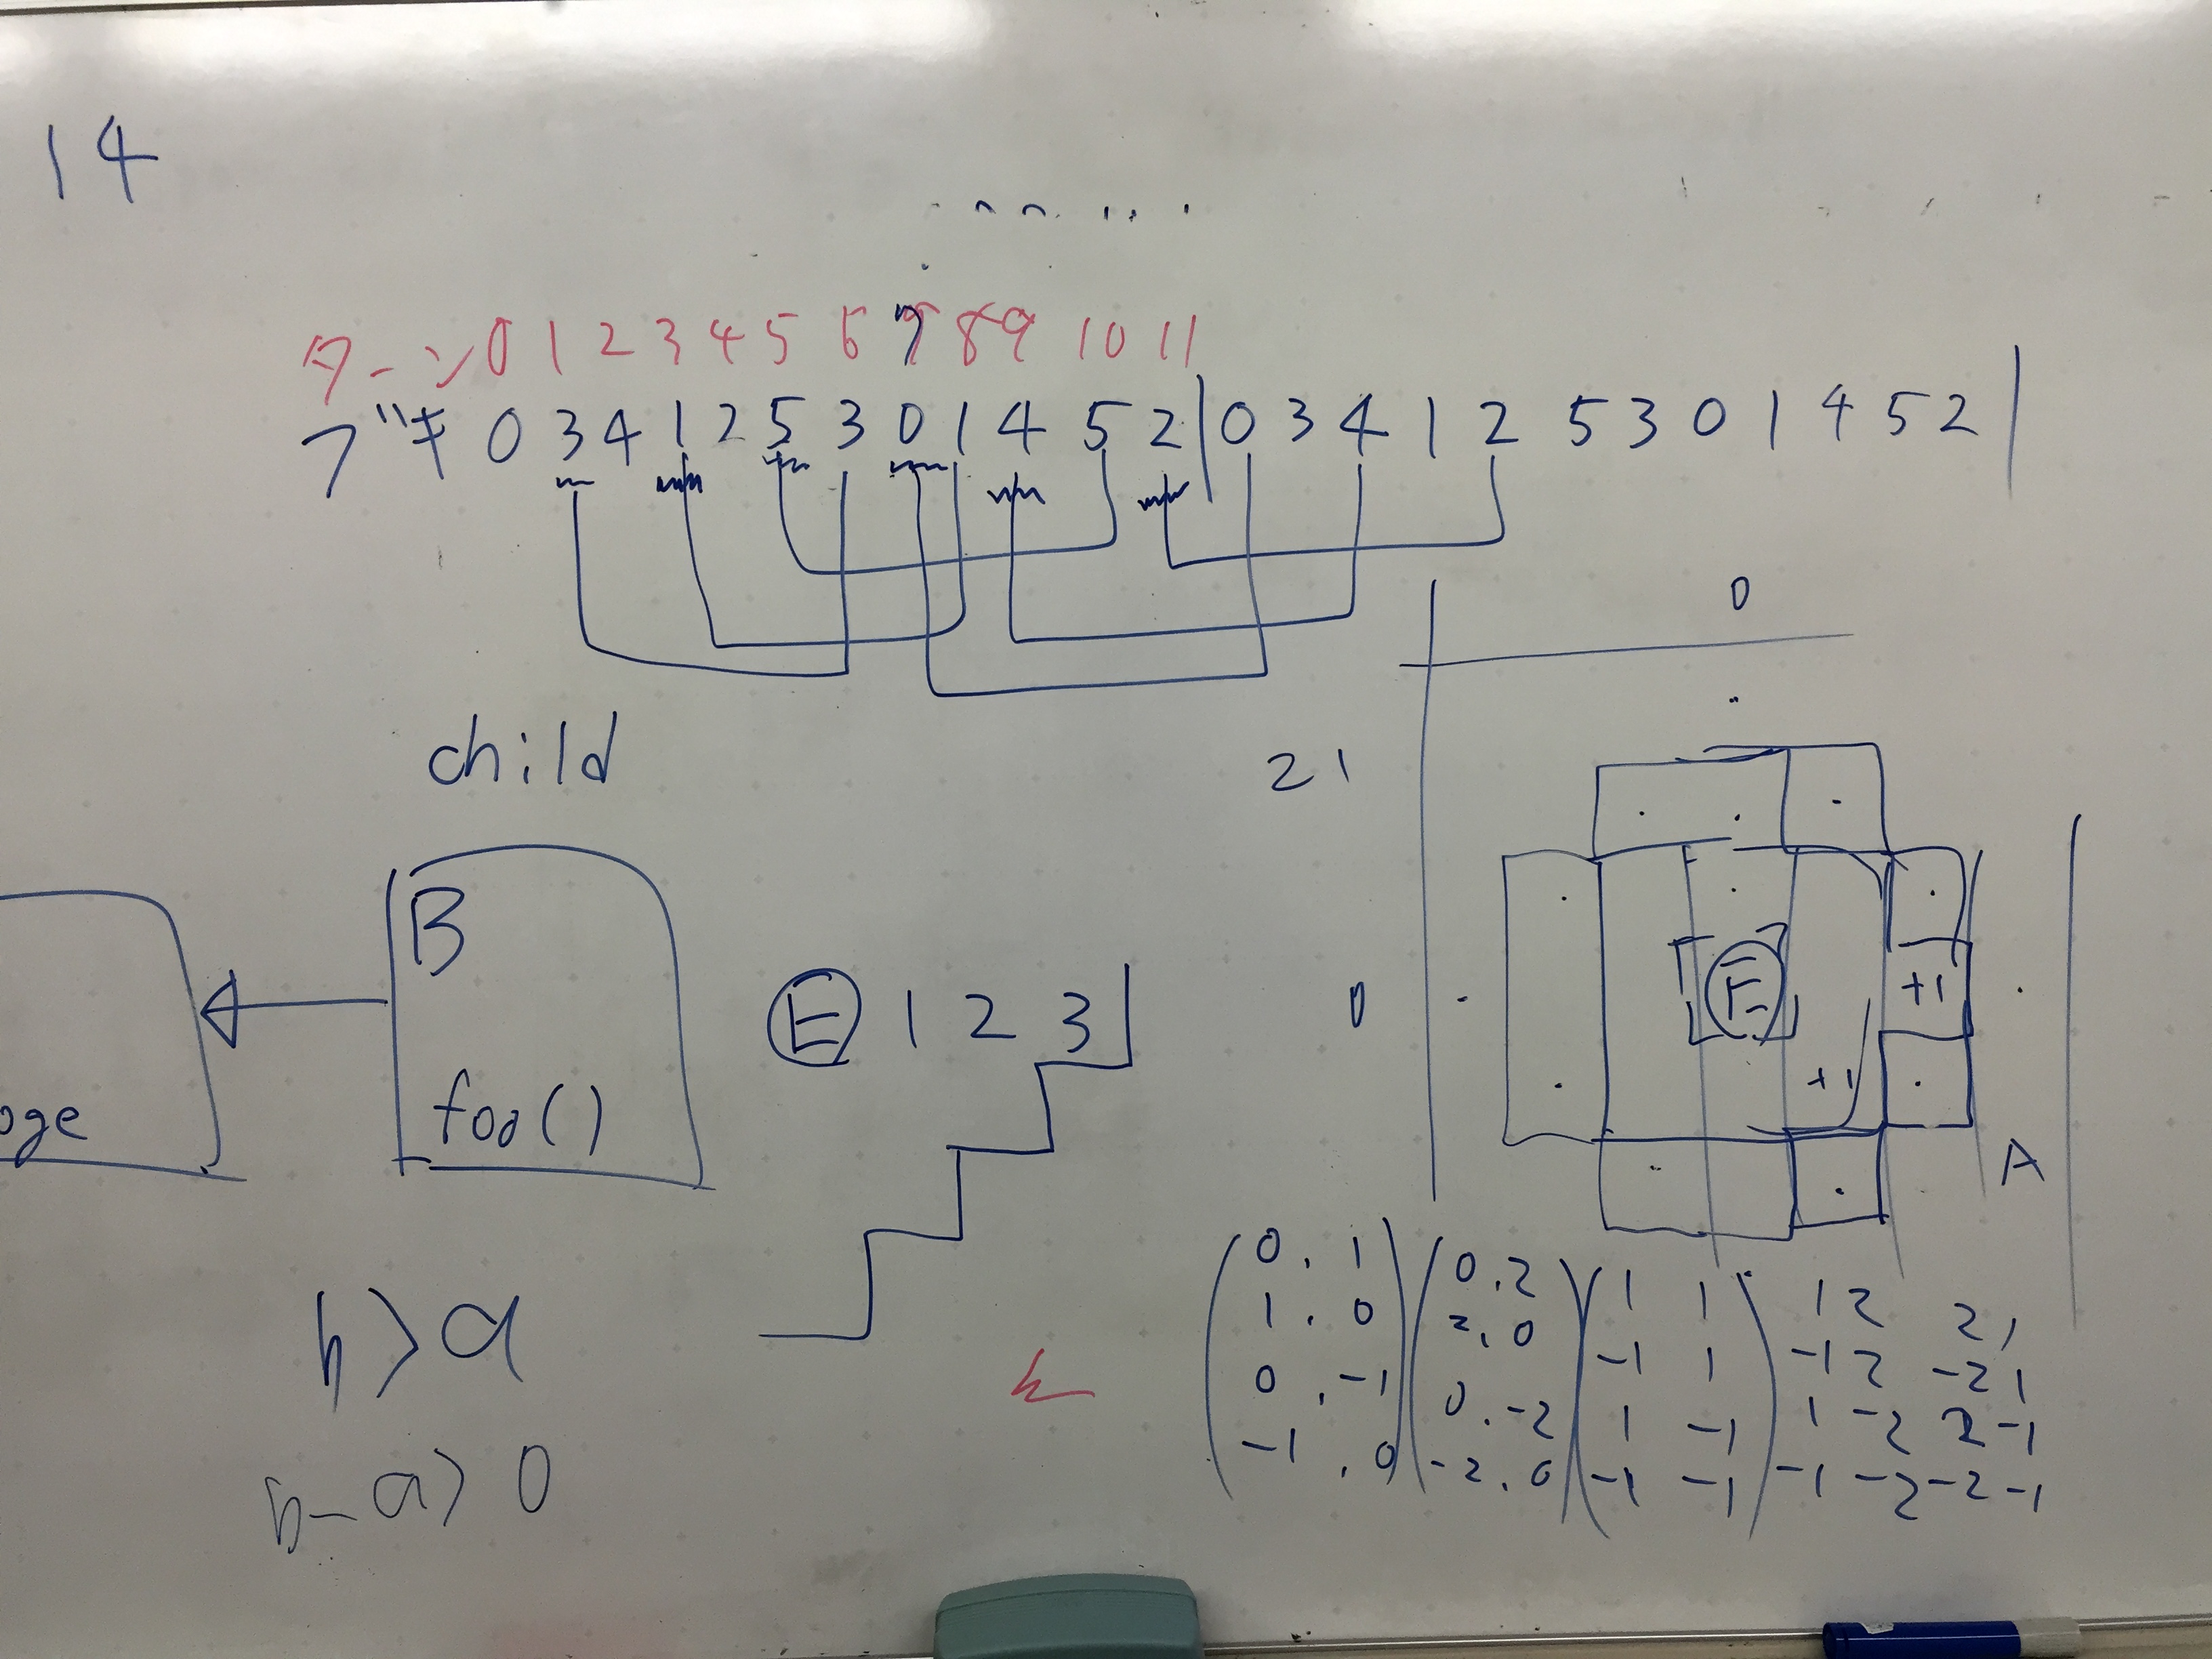 14
ターン 0 1 2 3 4 5 6 7 8 9 10 11
ブキ 0 3 4 1 2 5 3 0 1 4 5 2 | 0 3 4 1 2 5 3 0 1 4 5 2 |
0
child
21
B
foo()
oge
E 1 2 3
0
E
+1
+1
A
b > a
b - a > 0
0 , 1
1 , 0
0 , -1
-1 , 0
0 , 2
2 , 0
0 , -2
-2 , 0
1 1
-1 1
1 -1
-1 -1
1 2 2 1
-1 2 -2 1
1 -2 2 -1
-1 -2 -2 -1